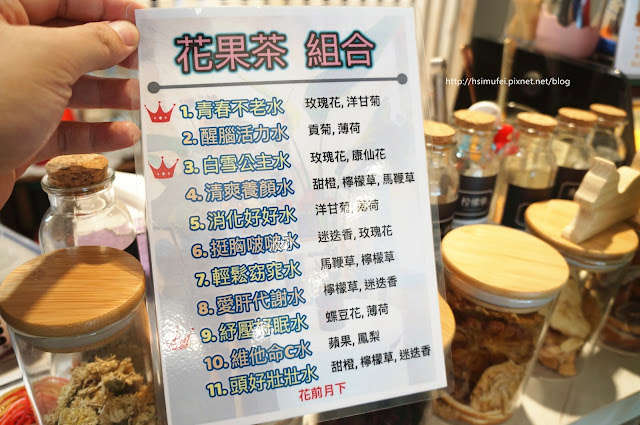 花果茶 組合
http://hsimufei.pixnet.net/blog
1. 青春不老水 玫瑰花, 洋甘菊
2. 醒腦活力水 貢菊, 薄荷
3. 白雪公主水 玫瑰花, 康仙花
4. 清爽養顏水 甜橙, 檸檬草, 馬鞭草
5. 消化好好水 洋甘菊, 薄荷
6. 挺胸啵啵水 迷迭香, 玫瑰花
7. 輕鬆窈窕水 馬鞭草, 檸檬草
8. 愛肝代謝水 檸檬草, 迷迭香
9. 紓壓好眠水 蝶豆花, 薄荷
10. 維他命C水 蘋果, 鳳梨
11. 頭好壯壯水 甜橙, 檸檬草, 迷迭香
花前月下